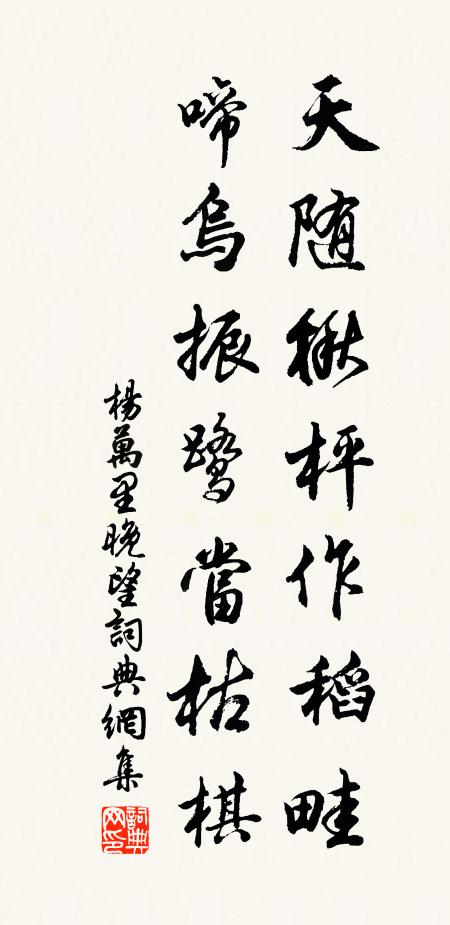 天随楸枰作稻畦
啼烏振鷺當枯棋
楊萬里晚望詞典網集
詞典网印